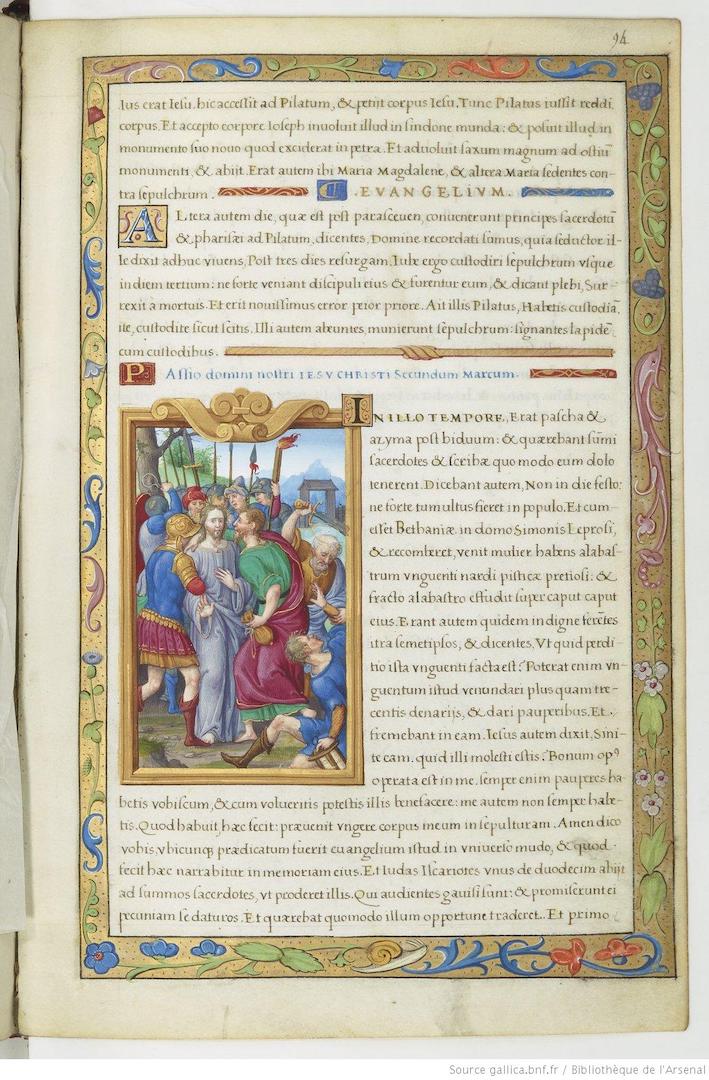 94
Ius erat Iesu. hic accessit ad Pilatum, & petijt corpus Iesu. Tunc Pilatus iussit reddi
corpus. Et accepto corpore Ioseph inuoluit illud in sindone munda: & posuit illud in
monumento suo nouo quod exciderat in petra. Et aduoluit saxum magnum ad ostiũ
monumenti, & abijt. Erat autem ibi Maria Magdalene, & altera Maria sedentes con-
tra sepulchrum. .EVANGELIVM.
ALtera autem die, quæ est post parasceuen, conuenerunt principes sacerdotũ
& pharisæi ad Pilatum, dicentes, Domine recordati sumus, quia seductor il-
le dixit adhuc viuens, Post tres dies resurgam. Iube ergo custodiri sepulchrum vsque
in diem tertium: ne forte veniant discipuli eius & furentur eum, & dicant plebi, Sur-
rexit a mortuis. Et erit nouissimus error peior priore. Ait illis Pilatus, Habetis custodiã,
ite, custodite sicut scitis. Illi autem abeuntes, munierunt sepulchrum: signantes lapidẽ
cum custodibus.
PAssio domini nostri IESV CHRISTI Secundum Marcum.
IN ILLO TEMPORE, Erat pascha &
azyma post biduum: & quærebant sum̃i
sacerdotes & scribæ quo modo eum dolo
tenerent. Dicebant autem, Non in die festo:
ne forte tumultus fieret in populo. Et cum
esset Bethaniæ in domo Simonis Leprosi,
& recumberet, venit mulier habens alabas-
trum vnguenti nardi pisticæ pretiosi: &
fracto alabastro effudit super caput caput
eius. Erant autem quidem indigne ferẽtes
itra semetipsos, & dicentes, Vt quid perdi-
tio ista vnguenti facta est? Poterat enim vn-
guentum istud venundari plus quam tre-
centis denarijs, & dari pauperibus. Et
fremebant in eam. Iesus autem dixit, Sini-
te eam. quid illi molesti estis? Bonum opꝰ
operata est in me. semper enim pauperes ha-
betis vobiscum, & cum volueritis potestis illis benefacere: me autem non semper habe-
tis. Quod habuit, hæc fecit: præuenit vngere corpus meum in sepulturam. Amen dico
vobis, vbicunqꝫ prædicatum fuerit euangelium istud in vniuerso mũdo, & quod
fecit hæc narrabitur in memoriam eius. Et Iudas Iscariotes vnus de duodecim abijt
ad summos sacerdotes, vt proderet illis. Qui audientes gauisi sunt: & promiserunt ei
pecuniam se daturos. Et quærebat quomodo illum opportune traderet. Et primo
Source gallica.bnf.fr / Bibliothèque de l'Arsenal